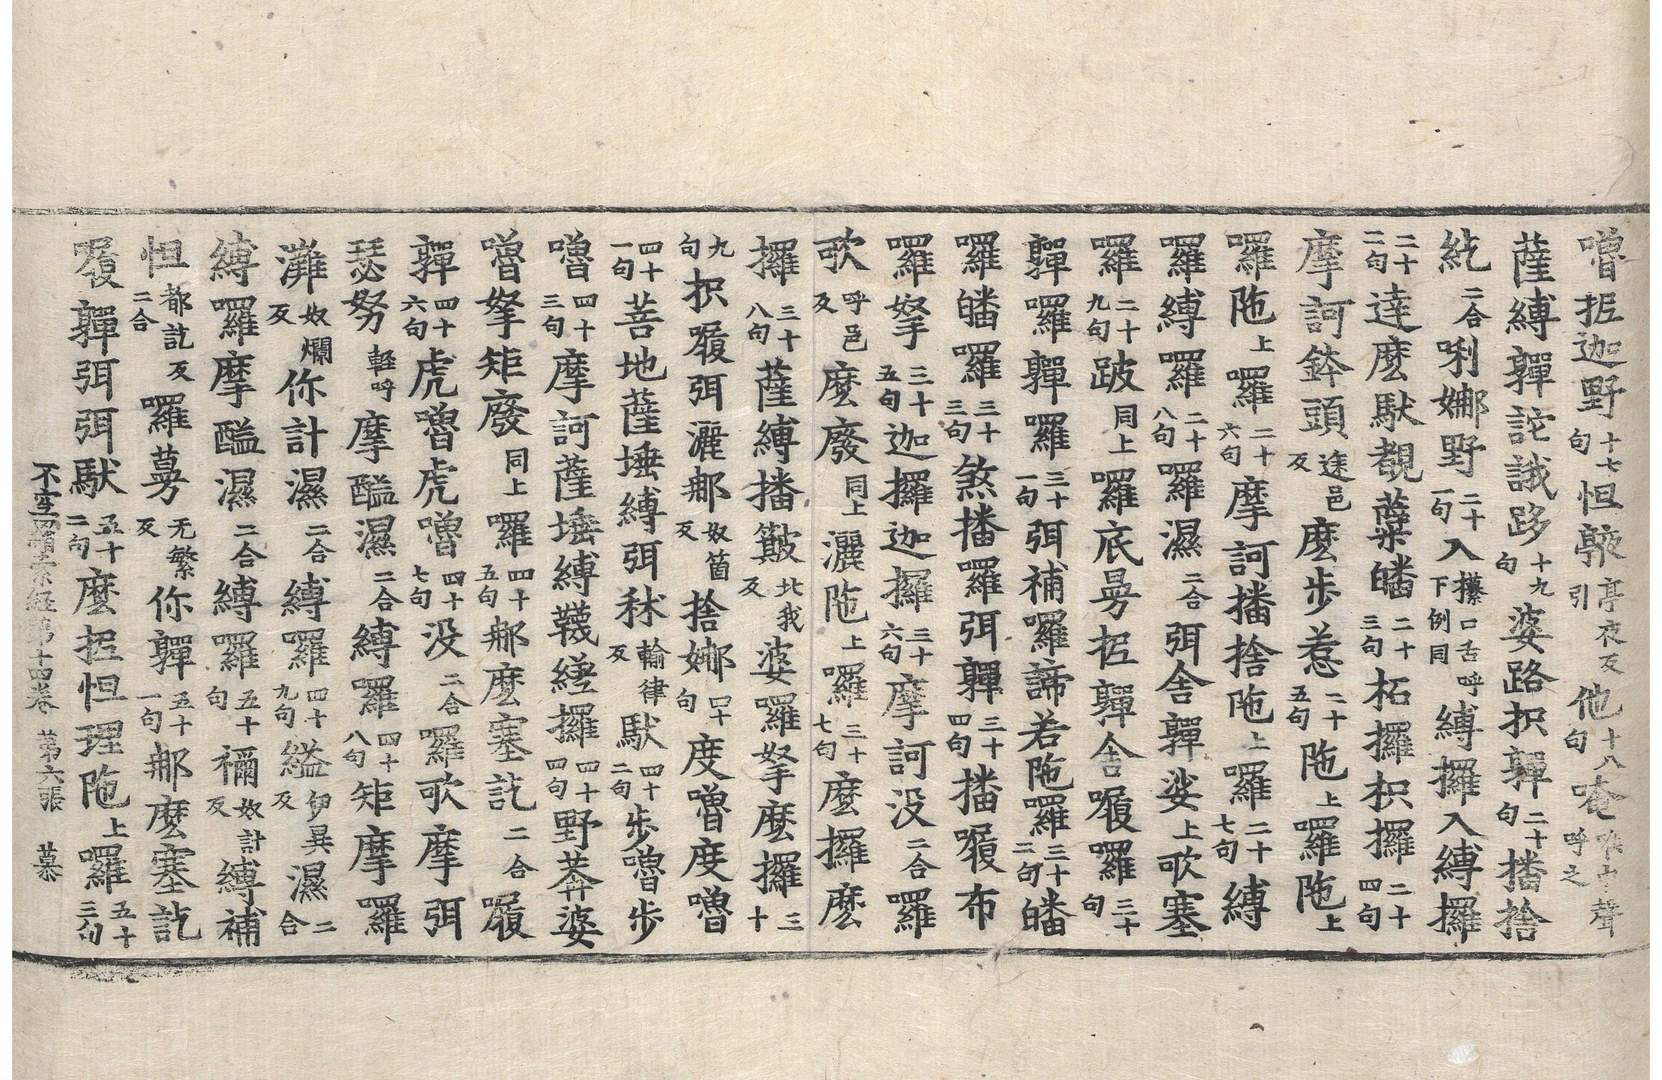 嚕抳迦野十七句怛𩕳亭夜反引他十八句唵喉中聲呼之
薩縛嚲詫誐跢十九句婆路枳嚲二十句播捨
紇二合唎娜野二十一句入攥口舌呼下例同縛攞入縛攞
二十二句達麼馱覩蘖皤二十三句柘攞枳攞二十四句
摩訶鉢頭途邑反麼步惹二十五句陁上羅陁上
囉陁上囉二十六句摩訶播捨陁上囉二十七句縛
囉縛囉二十八句囉濕二合弭舍嚲娑上歌塞
囉二十九句跛同上囉底㝵抳嚲舍㘑囉三十句
嚲囉嚲囉三十一句弭補囉諦若陁羅三十二句皤
囉皤囉三十三句煞播羅弭嚲三十四句播㘑布
囉拏三十五句迦攞迦攞三十六句摩訶没二合囉
歌呼邑反麼廢同上灑陁上囉三十七句麼攞麼
攞三十八句薩縛播簸北我反婆囉拏麼攞三十
九句枳㘑弭灑那奴箇反捨娜四十句度嚕度嚕
四十一句菩地薩埵縛弭秫輸律反馱四十二句步嚕步
嚕四十三句摩訶薩埵縛韈繕攞四十四句野莾婆
嚕拏矩廢同上囉四十五句那麼塞訖二合㘑
嚲四十六句虎嚕虎嚕四十七句没二合囉歌摩弭
瑟努輕呼摩醯濕二合縛囉四十八句矩摩囉
灘奴爛反你計濕二合縛囉四十九句縊伊異反濕二合
縛囉摩醯濕二合縛囉五十句禰奴計反縛補
怛都訖反二合囉㝵无繁反你嚲五十一句那麼塞訖
㘑嚲弭弭馱五十二句麼抳怛理陁上囉五十三句
不空羂索経第十四卷 第六張 慕